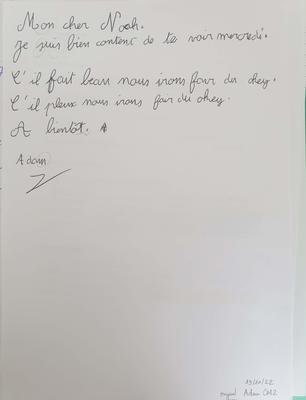 Mon cher Noah.
Je suis bien content de te voir mercredi.
C'il fait beau nous irons fair du okey.
C'il pleux nous irons fair du okey.
A bientôt. A
Adam
19/11/22
Adam CM2